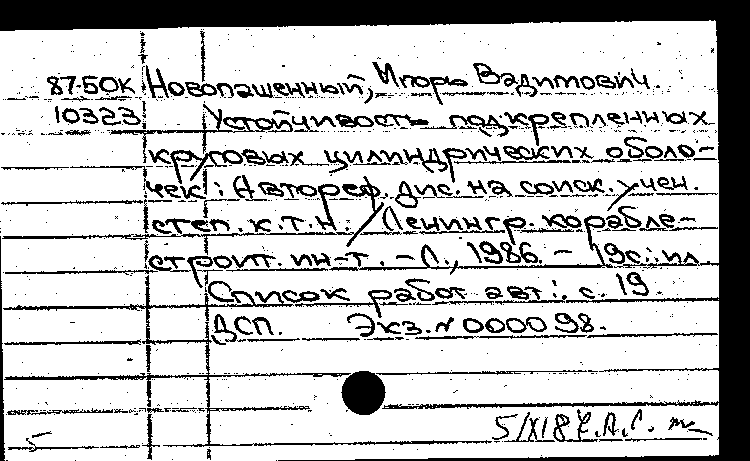 87-5ОК Новопашенный, Игорь Вадимович.
10323 Устойчивость подкрепленных
круговых цилиндрических оболо-
чек : Автореф. дис. на соиск. учен.
степ. к. т. н. / Ленингр. корабле-
строит. ин-т. – Л., 1986. – 19с.: ил.
Список работ авт.: с. 19.
ДСП. Экз. № 000098.
5